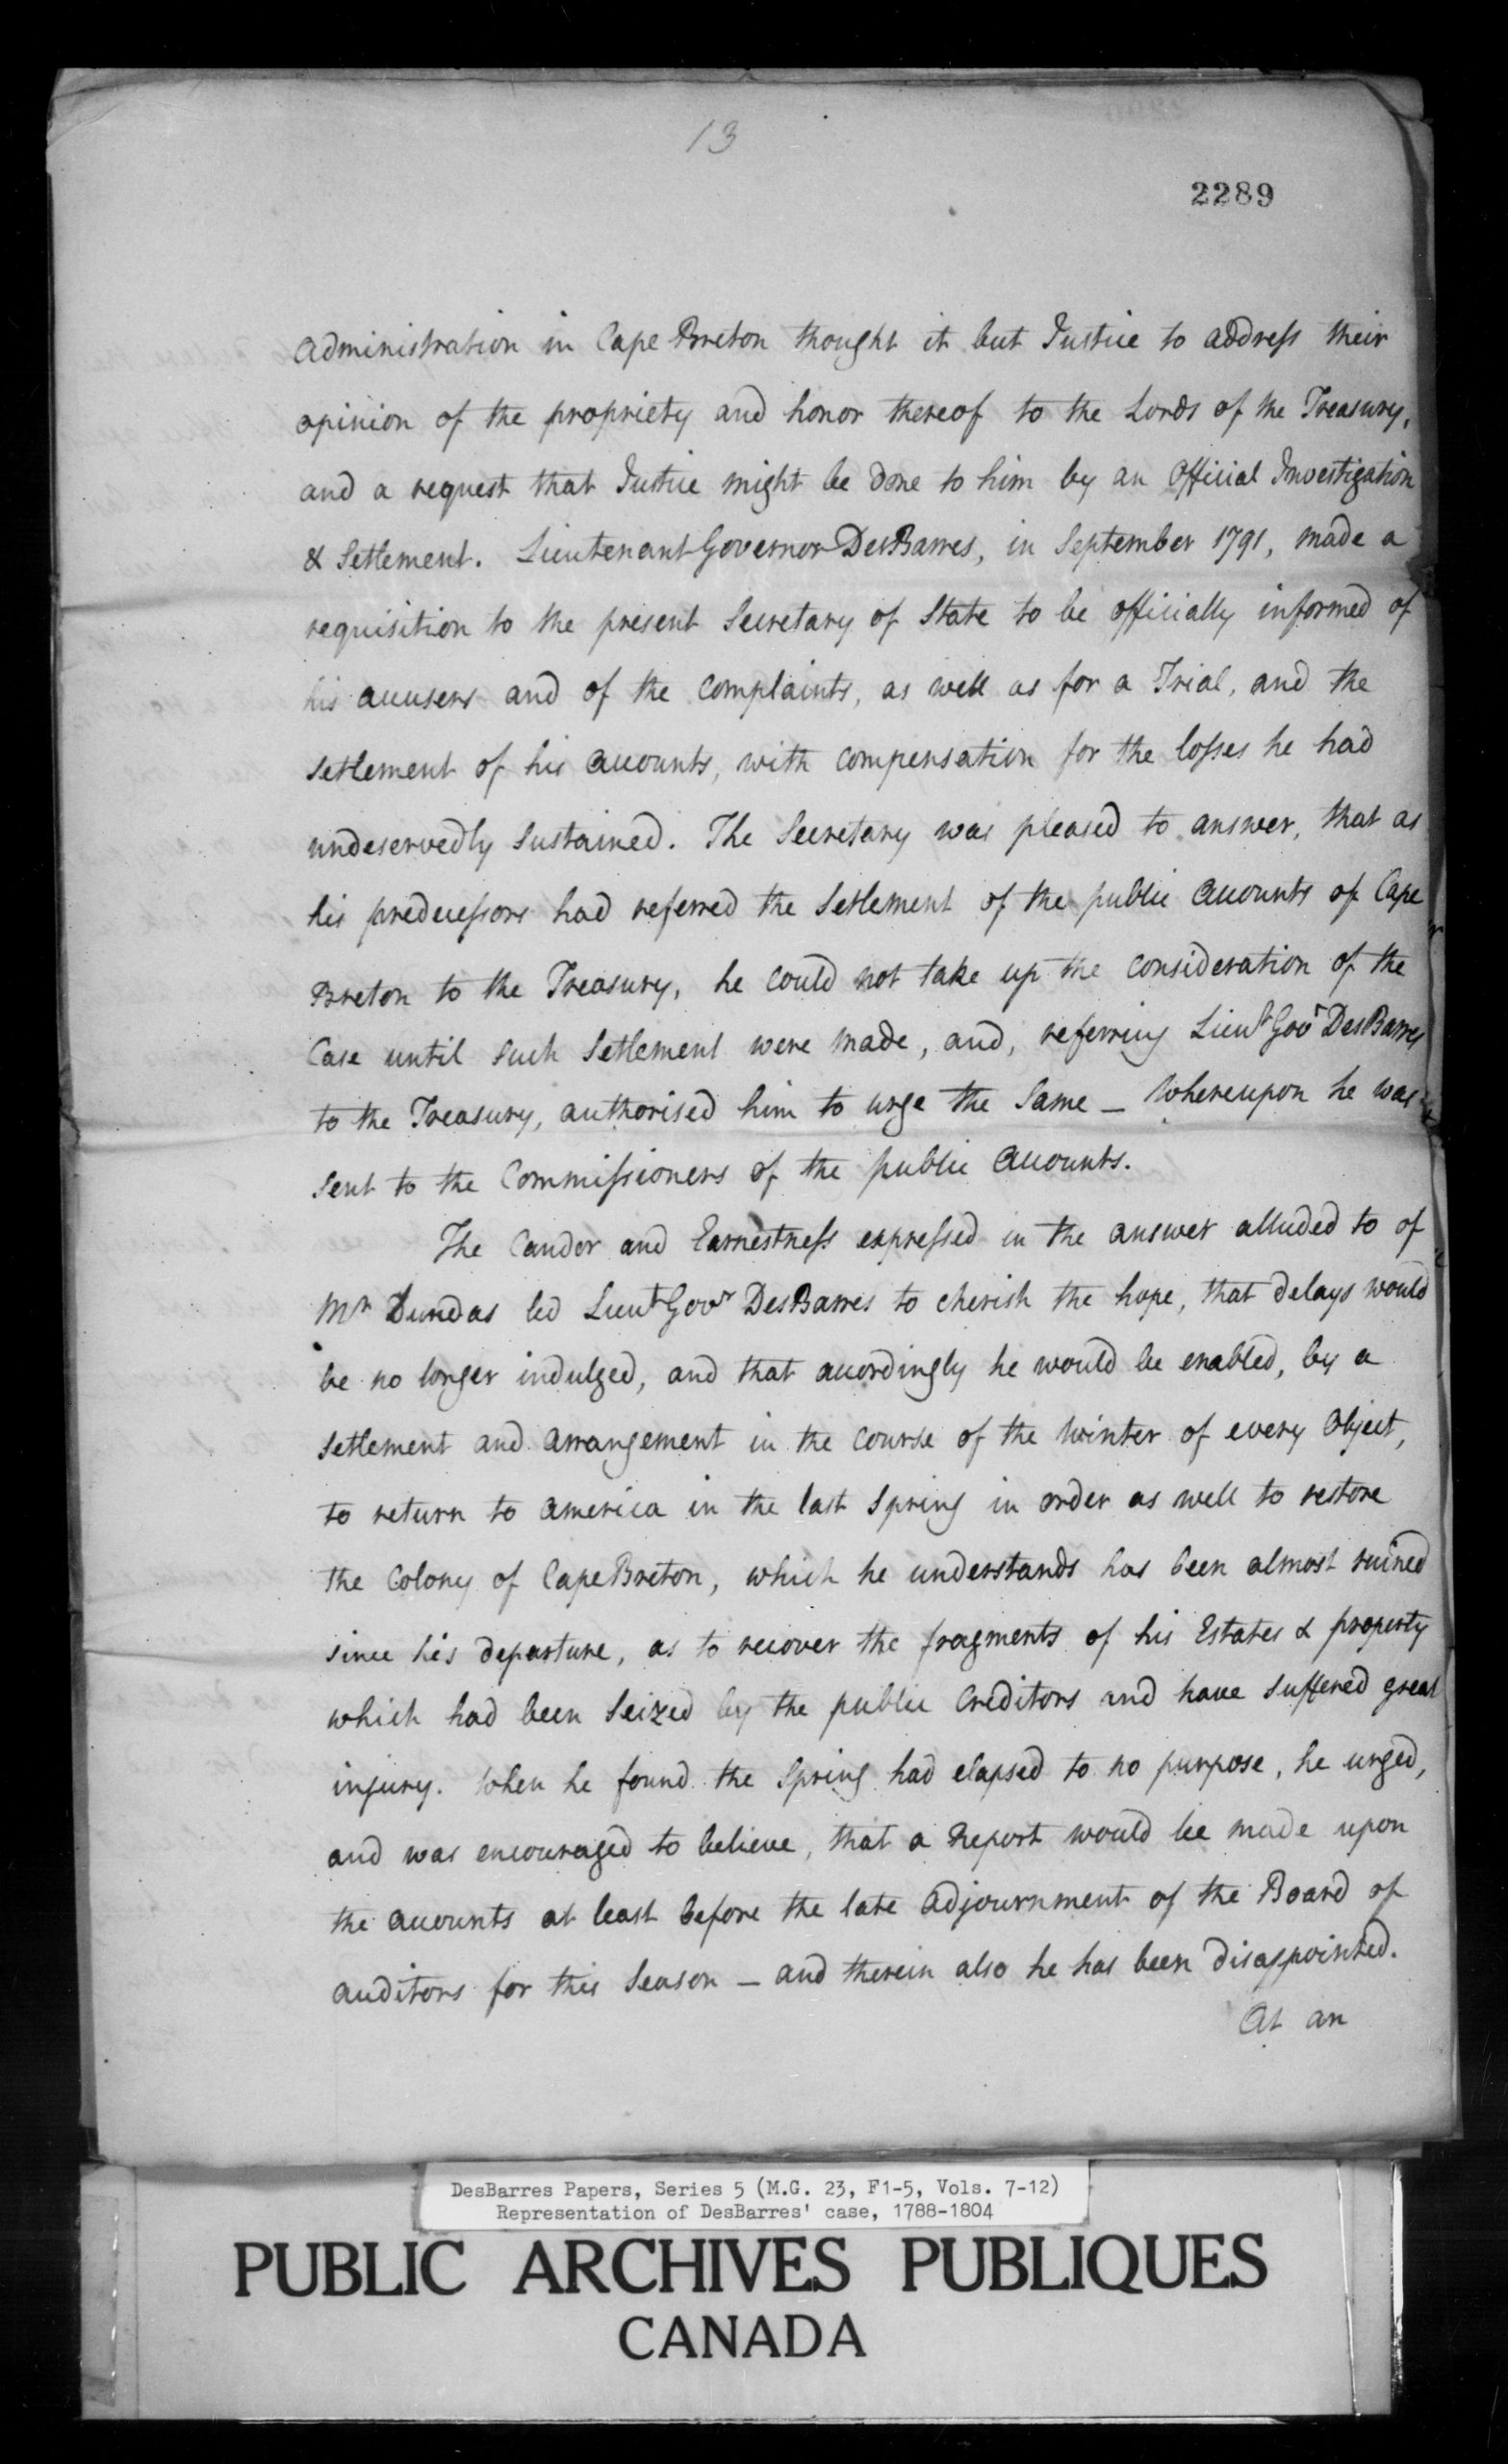 13
2289
Administration in Cape Breton thought it but Justice to address their
opinion of the propriety and honor thereof to the Lords of the Treasury,
and a request that Justice might be done to him by an Official Investigation
& Setlement. Lieutenant Governor DesBarres, in September 1791, made a
requisition to the present Secretary of State to be officially informed of
his accusers and of the complaints, as well as for a Trial, and the
setlement of his accounts, with compensation for the losses he had
undeservedly sustained. The Secretary was pleased to answer, that as
his predecessors had referred the Setlement of the public accounts of Cape
Breton to the Treasury, he could not take up the consideration of the
Case until such Setlement were made, and, referring Lieut Govr DesBarres
to the Treasury, authorised him to urge the same — Whereupon he was
sent to the Commissioners of the public Accounts.
The Candor and Earnestness expressed in the answer alluded to of
Mr Dundas led Lieut Govr DesBarres to cherish the hope, that delays would
be no longer indulged, and that accordingly he would be enabled, by a
setlement and arrangement in the course of the Winter of every Object,
to return to America in the last Spring in order as well to restore
the Colony of CapeBreton, which he understands has been almost ruined
since his departure, as to recover the fragments of his Estates & property
which had been seized by the public Creditors and have suffered great
injury. When he found the Spring had elapsed to no purpose, he urged,
and was encouraged to believe, that a Report would be made upon
the accounts at least before the late Adjournment of the Board of
Auditors for this Season — and therein also he has been disappointed.
At an
DesBarres Papers, Series 5 (M.G. 23, F1-5, Vols. 7-12)
Representation of DesBarres' case, 1788-1804
PUBLIC ARCHIVES PUBLIQUES
CANADA